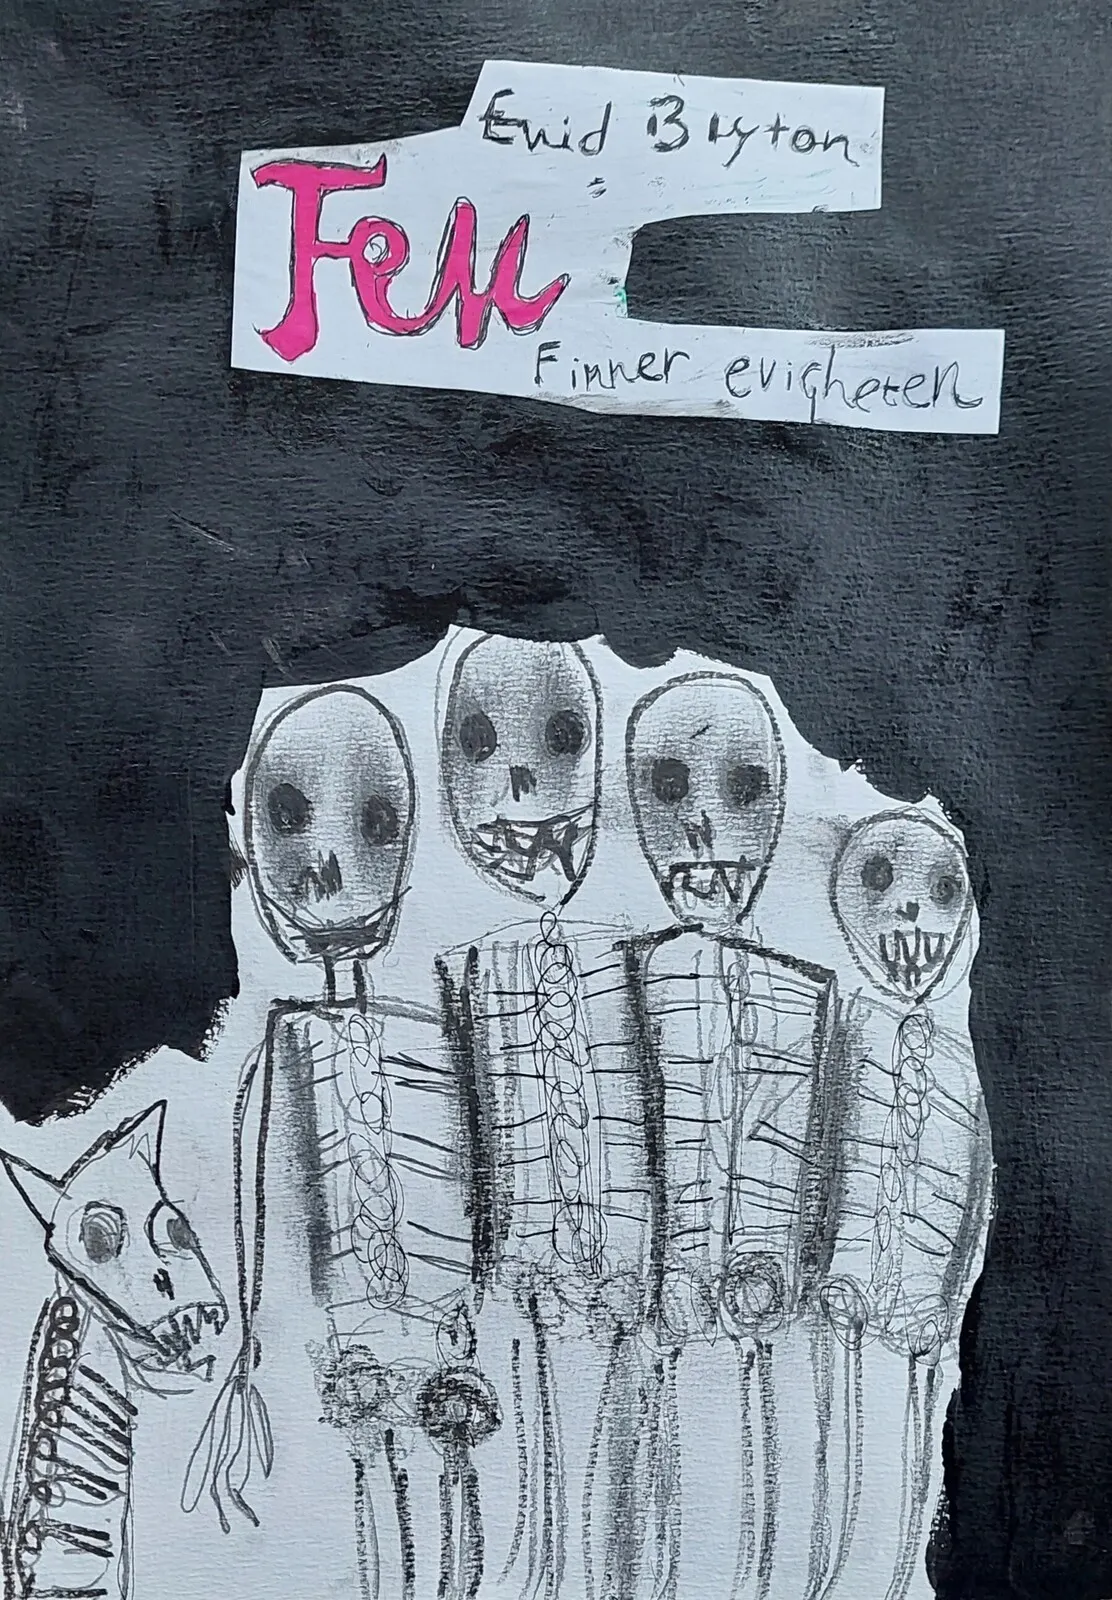 Enid Blyton
Fem
Finner evigheten